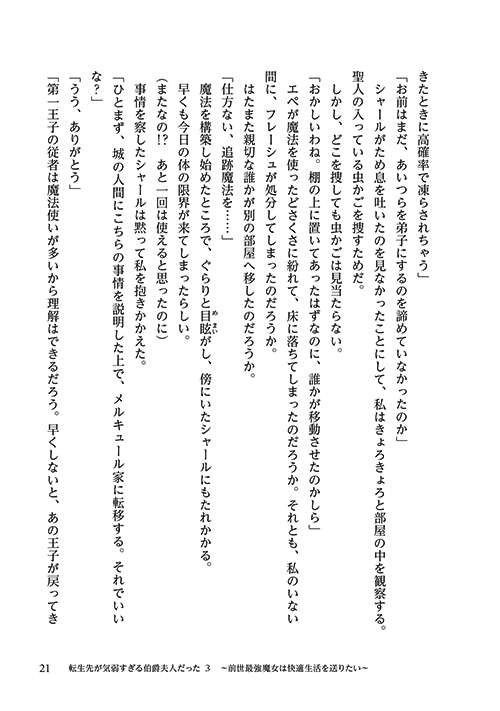 きたときに高確率で凍らされちゃう」
「お前はまだ、あいつらを弟子にするのを諦めていなかったのか」
シャールがため息を吐いたのを見なかったことにして、私はきょろきょろと部屋の中を観察する。
聖人の入っている虫かごを捜すためだ。
しかし、どこを捜しても虫かごは見当たらない。
「おかしいわね。棚の上に置いてあったはずなのに、誰かが移動させたのかしら」
エペが魔法を使ったどさくさに紛れて、床に落ちてしまったのだろうか。それとも、私のいない
間に、フレーシュが処分してしまったのだろうか。
はたまた親切な誰かが別の部屋へ移したのだろうか。
「仕方ない、追跡魔法を……」
魔法を構築し始めたところで、ぐらりと目眩がし、傍にいたシャールにもたれかかる。
めまい
早くも今日の体の限界が来てしまったらしい。
（またなの!?　あと一回は使えると思ったのに）
事情を察したシャールは黙って私を抱きかかえた。
「ひとまず、城の人間にこちらの事情を説明した上で、メルキュール家に転移する。それでいい
な？」
「うう、ありがとう」
「第一王子の従者は魔法使いが多いから理解はできるだろう。早くしないと、あの王子が戻ってき
21　転生先が気弱すぎる伯爵夫人だった 3　～前世最強魔女は快適生活を送りたい～